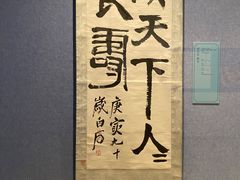 天下人〻
長壽
庚寅九十
歲白石